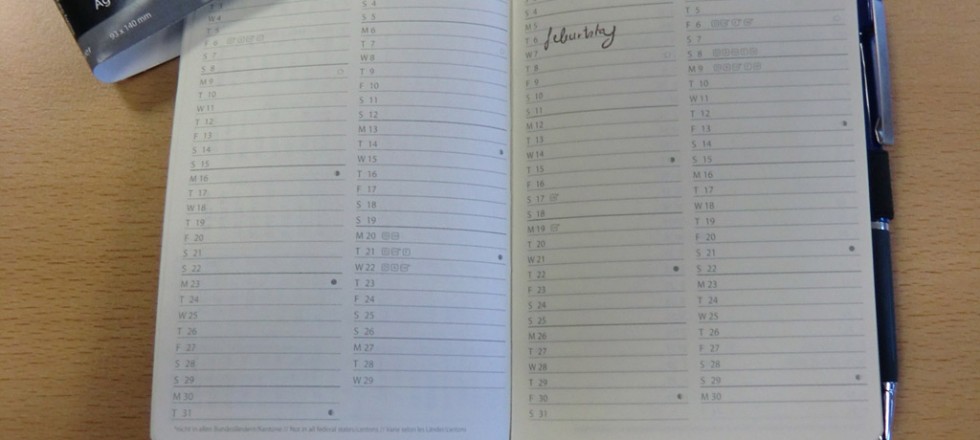 Ag
93 x 140 mm
W 4
T 5
F 6
S 7
S 8
M 9
T 10
W 11
T 12
F 13
S 14
S 15
M 16
T 17
W 18
T 19
F 20
S 21
S 22
M 23
T 24
W 25
T 26
F 27
S 28
S 29
M 30
T 31
S 4
S 5
M 6
T 7
W 8
T 9
F 10
S 11
S 12
M 13
T 14
W 15
T 16
F 17
S 18
S 19
M 20
T 21
W 22
T 23
F 24
S 25
S 26
M 27
T 28
W 29
S 4
M 5
T 6 Geburtstag
W 7
T 8
F 9
S 10
S 11
M 12
T 13
W 14
T 15
F 16
S 17
S 18
M 19
T 20
W 21
T 22
F 23
S 24
S 25
M 26
T 27
W 28
T 29
F 30
S 31
T 5
F 6
S 7
S 8
M 9
T 10
W 11
T 12
F 13
S 14
S 15
M 16
T 17
W 18
T 19
F 20
S 21
S 22
M 23
T 24
W 25
T 26
F 27
S 28
S 29
M 30
Nicht in allen Bundesländern/Kantonen // Not in all federal states/cantons // Varie selon les Länder/cantons